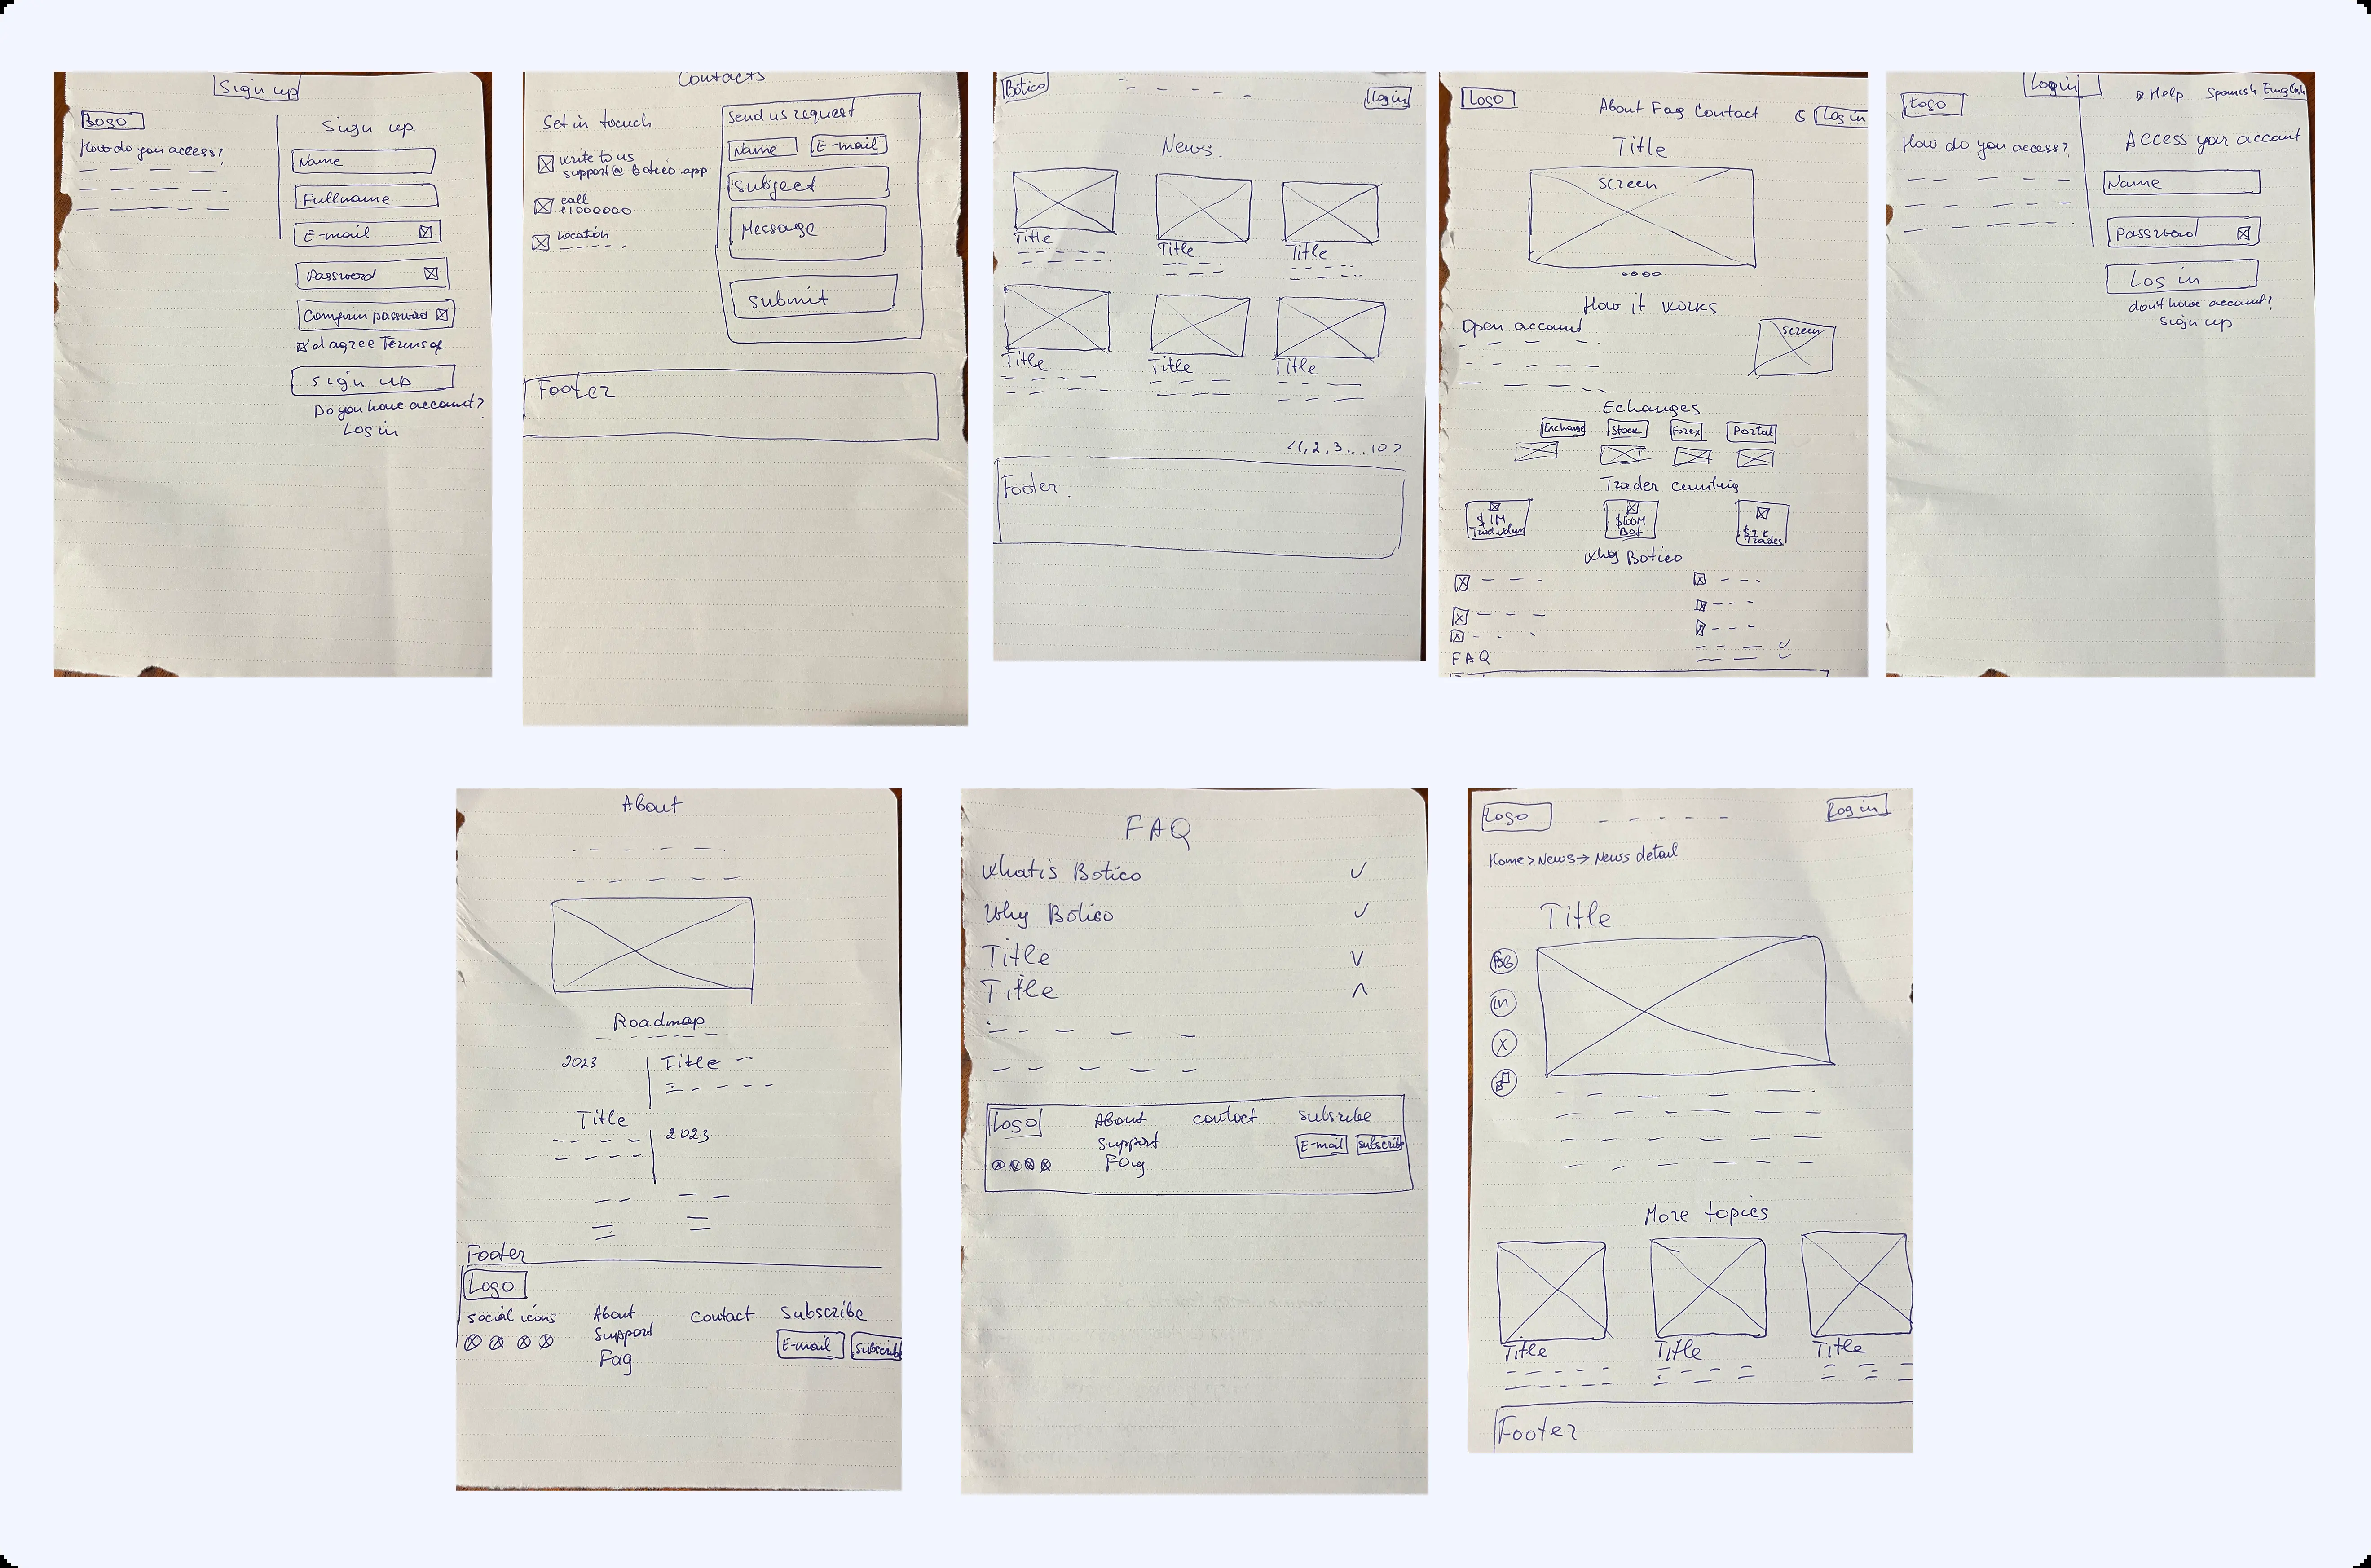 Sign up
Logo
How do you access?
Sign up
Name
Fullname
E-mail
Password
Comfirm password
I agree Terms of
Sign up
Do you have account?
Log in
Contacts
Get in touch
write to us
support@botico.app
call
+1000000
Location
Send us request
Name E-mail
Subject
Message
Submit
Footer
Botico
Log in
News.
Title Title Title
Title Title Title
<1, 2, 3...10>
Footer.
Logo
About Faq Contact
Log in
Title
screen
How it works
Open account
screen
Echanges
Exchange Stock Forex Portal
Trader
$1M
$100M
Bot
Trades
Why Botico
FAQ
Login
Help Spanish English
Logo
How do you access?
Access your account
Name
Password
Log in
don't have account?
Sign up
About
Roadmap
2023 Title
Title 2023
Footer
Logo
social icons About contact Subscribe
Support
E-mail Subscribe
Faq
FAQ
What is Botico
Why Botico
Title
Title
Logo About contact Subsribe
Support
E-mail Subscribe
Faq
Logo
Log in
Home > News → News detail
Title
in
X
More topics
Title Title Title
Footer